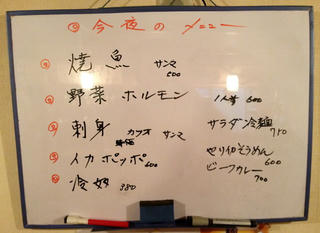 ◎今夜のメニュー
◎焼魚 サンマ 600
◎野菜ホルモン 1人前 600
◎刺身 カツオ サンマ 時価
サラダ冷麺 750
◎イカポッポ 600
セリイカそうめん 600
◎冷奴 380
ビーフカレー 700